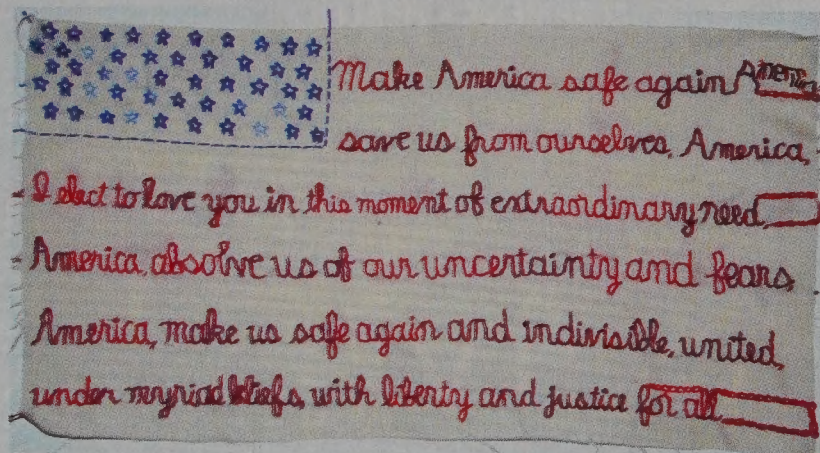 Make America safe again America
save us from ourselves. America,
I elect to love you in this moment of extraordinary need,
America, absolve us of our uncertainty and fears,
America, make us safe again and indivisible, united,
under myriad beliefs, with liberty and justice for all